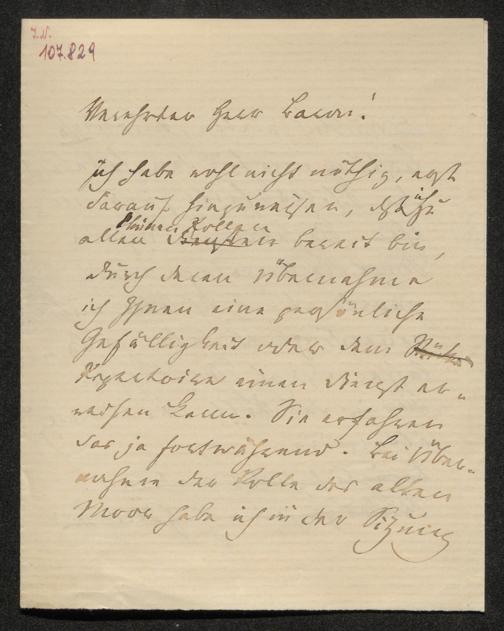 I.N.
107.829
Verehrter Herr Baron!
Ich habe wohl nicht nöthig, erst
darauf hinzuweisen, daß ich zu
allen kleinen Rollen bereit bin,
durch deren Übernahme
ich Ihnen eine persönliche
Gefälligkeit oder dem
Repertoire einen Dienst er-
weisen kann. Sie erfahren
das ja fortwährend. Bei Über-
nahme der Rolle des alten
Moor habe ich in der Sitzung